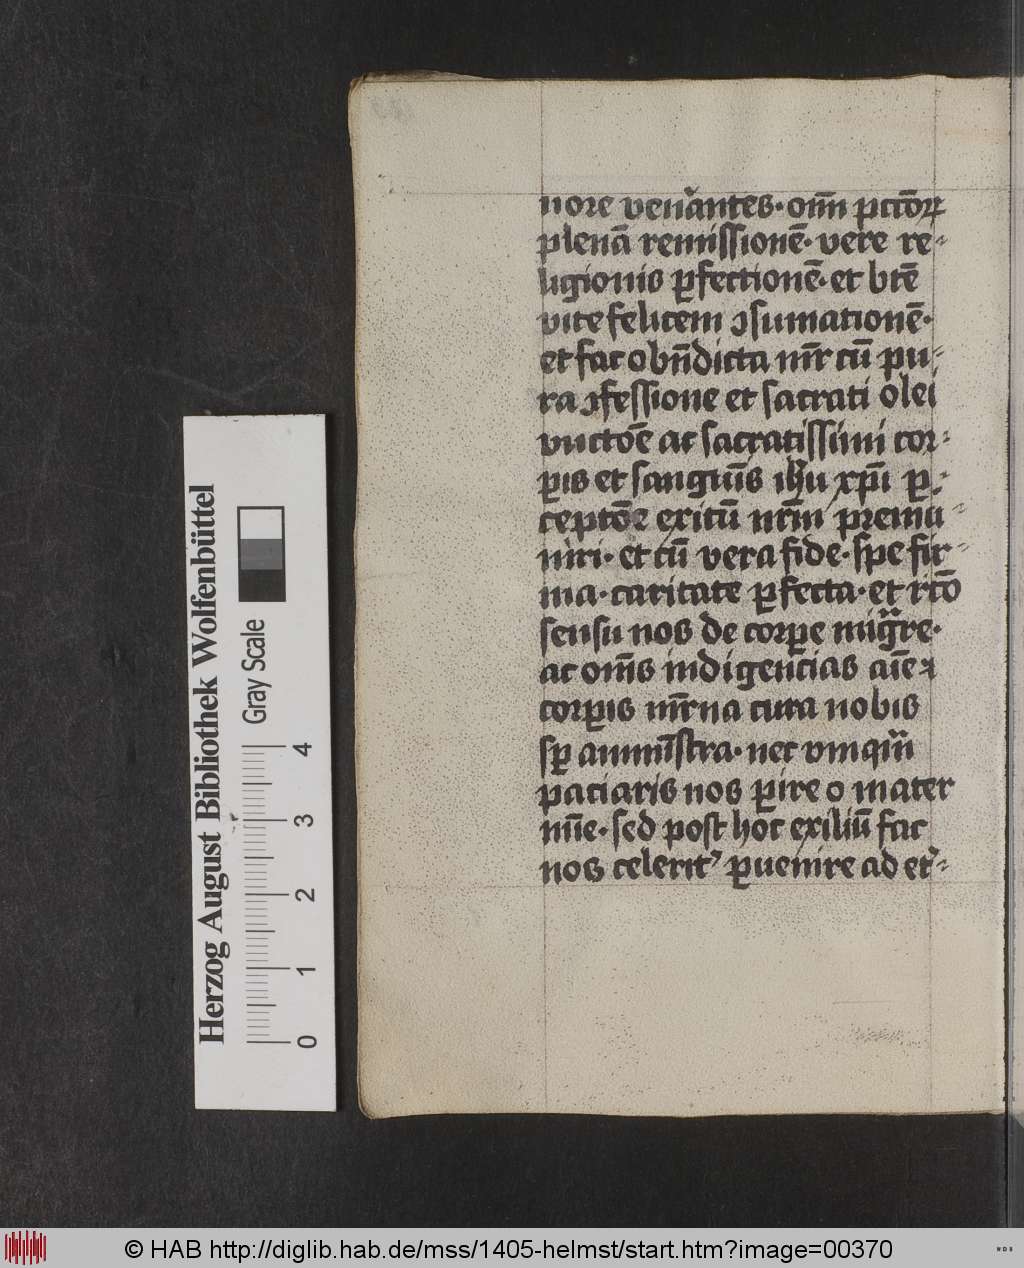 nore venerantes · omīm pctōrꝝ
plenā remissionē · vere re-
ligionis ꝑfectionē · et btē
vite felicem ↄsumationē ·
et fac o bn̄dicta mr̄ cū pu-
ra ↄfessione et sacrati olei
vnctōe ac sacratissimi cor-
ꝑis et sanguīs ihū xp̄i ꝑ-
ceptōe exitū nrm̄ premu-
niri · et cū vera fide · spe fir-
ma · caritate ꝑfecta · et rctō
sensu nos de corꝑe migrare ·
ac omēs indigencias aīe ⁊
corꝑis mr̄na cura nobis
sꝑ amministra · nec vnquā
paciaris nos ꝑire o mater
mīe · sed post hoc exiliū fac
nos celerit ꝑuenire ad et-
Herzog August Bibliothek Wolfenbüttel
Gray Scale
0 1 2 3 4
© HAB http://diglib.hab.de/mss/1405-helmst/start.htm?image=00370